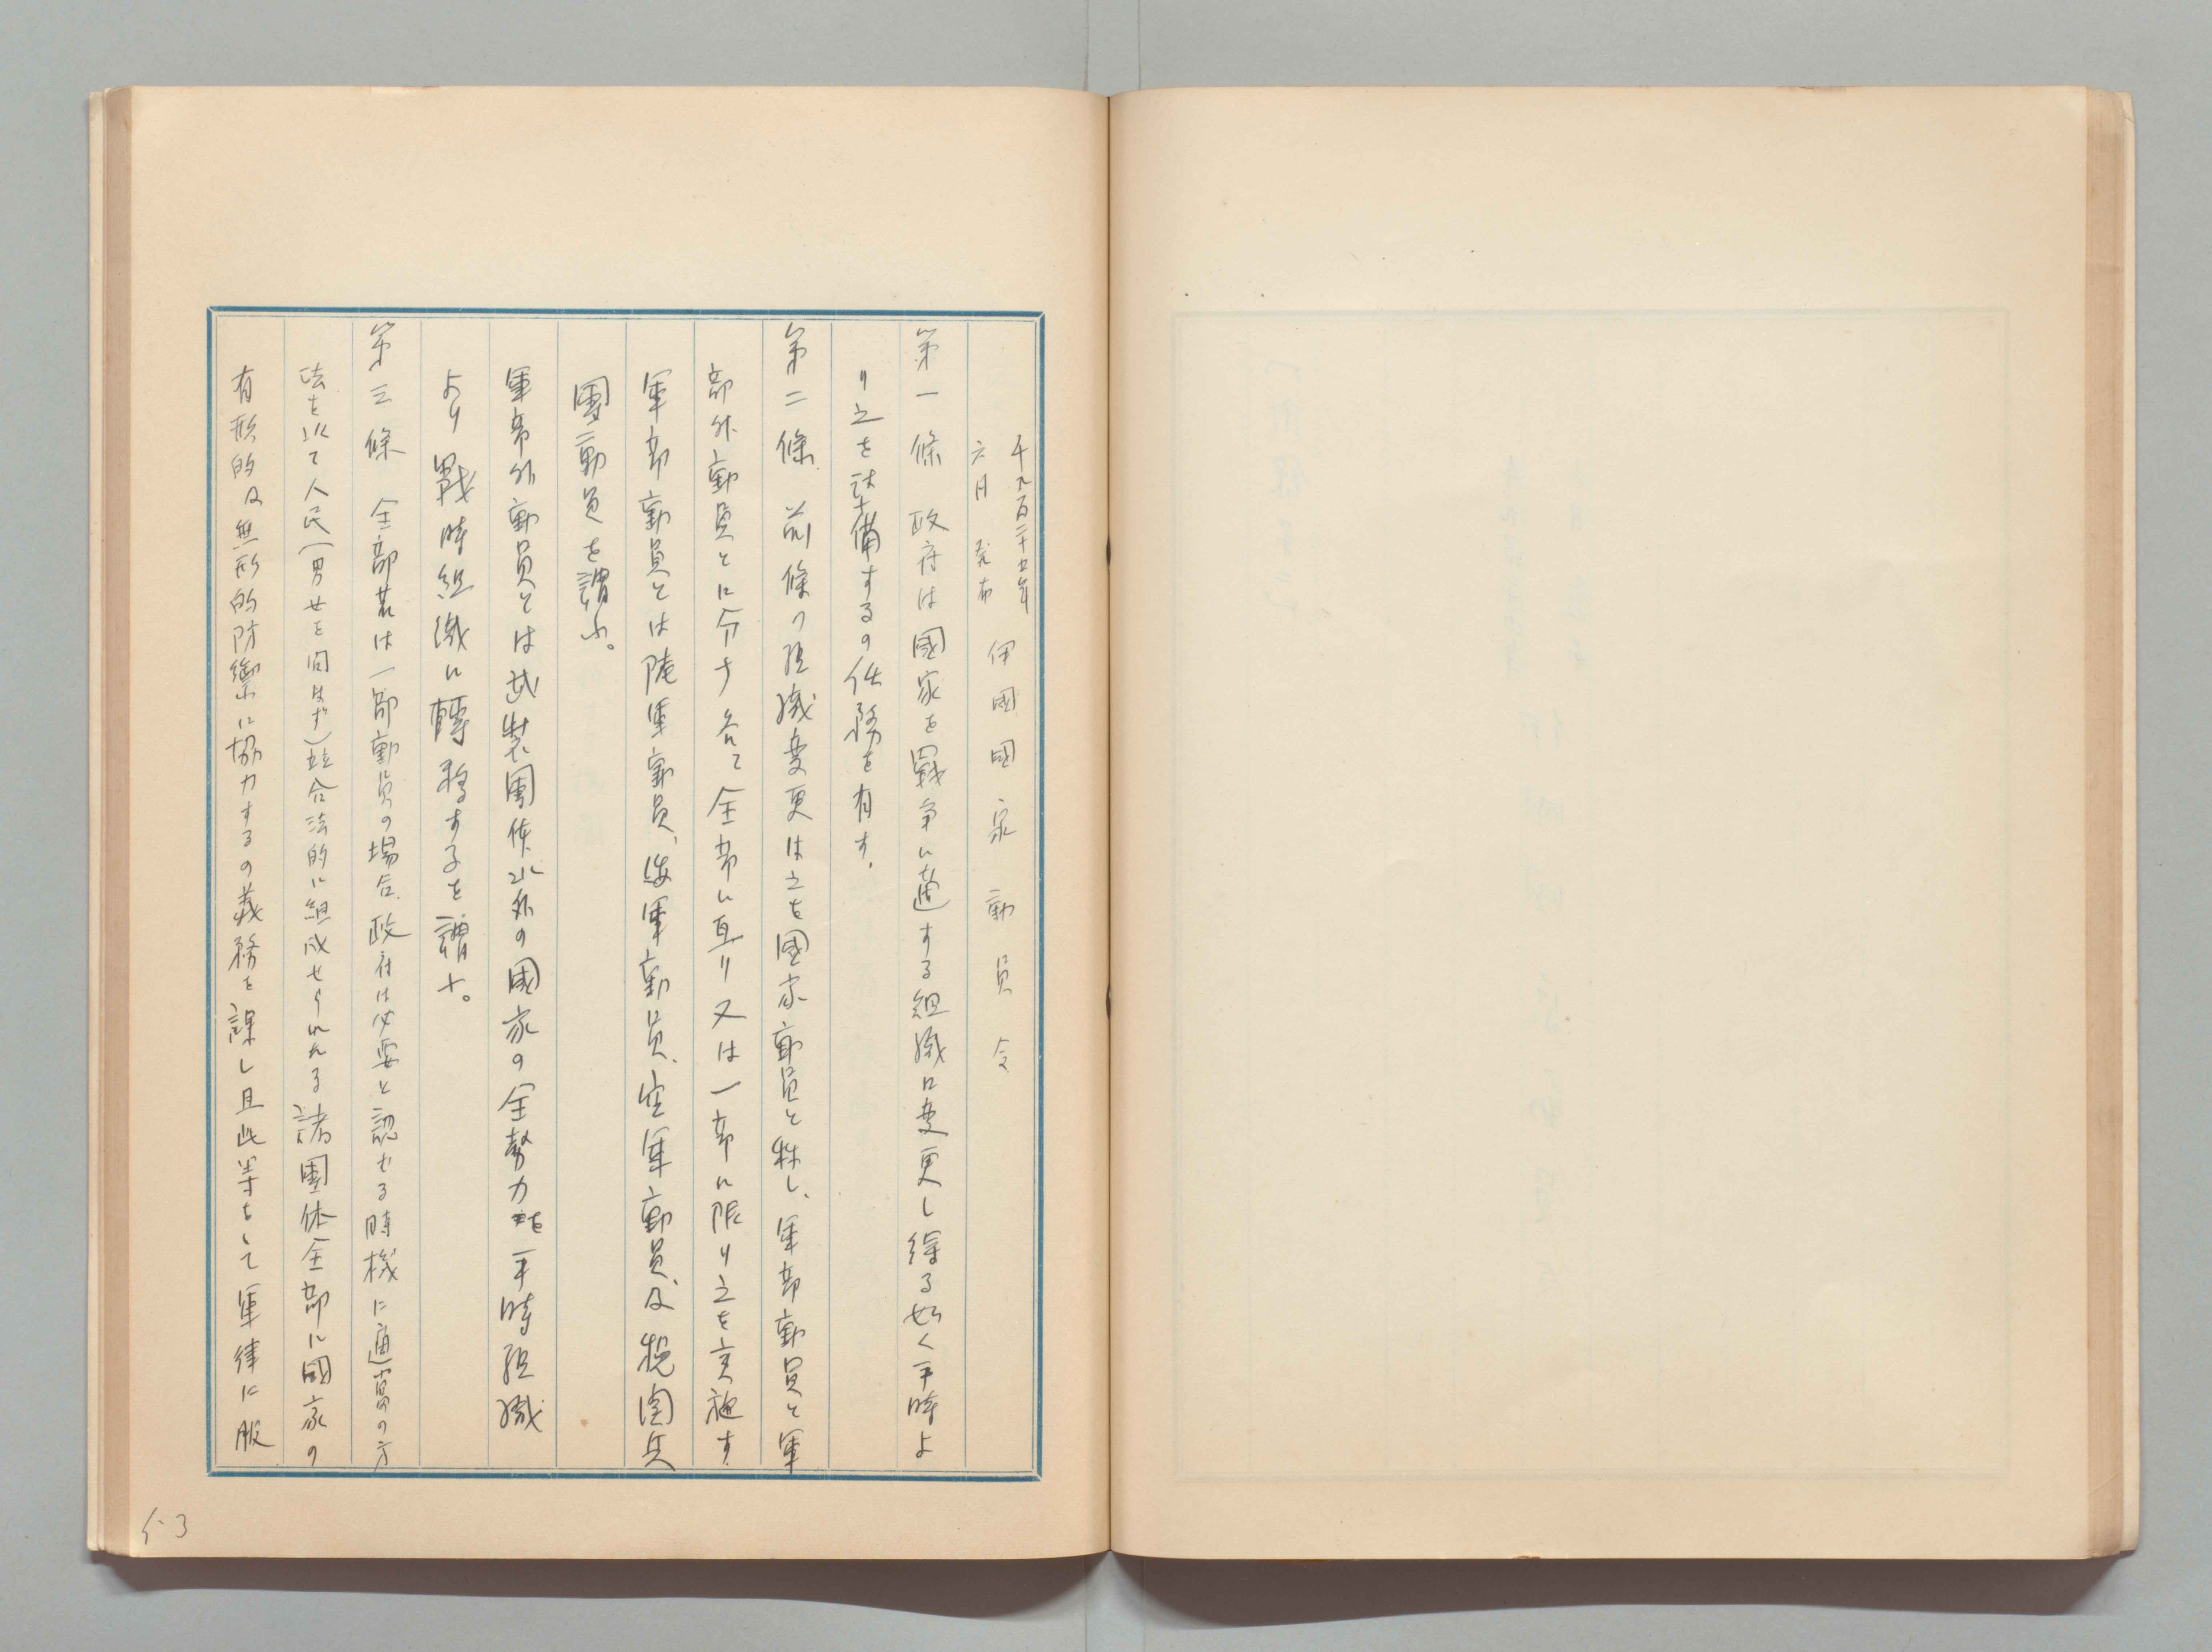 千九百二十五年
六月 発布
伊國國家動員令
第一條 政府は國家を戰争に適する組織に変更し得る如く平時よ
り之を準備するの任務を有す、
第二條 前條の組織変更は之を國家動員と称し、軍部動員と軍
部外動員とに分ち各て全部に亘り又は一部に限り之を実施す
軍部動員とは陸軍動員、海軍動員、空軍動員及税関兵
團動員を謂ふ。
軍部外動員とは武装團体以外の國家の全勢力を平時組織
より戰時組織に轉移するを謂ふ。
第三條 全部若は一部動員の場合、政府は必要と認むる時機に適當の方
法を以て人民(男女を問はず)並合法的に組成せられたる諸團体全部に國家の
有形的及無形的防禦に協力するの義務を課し且此等をして軍律に服
53